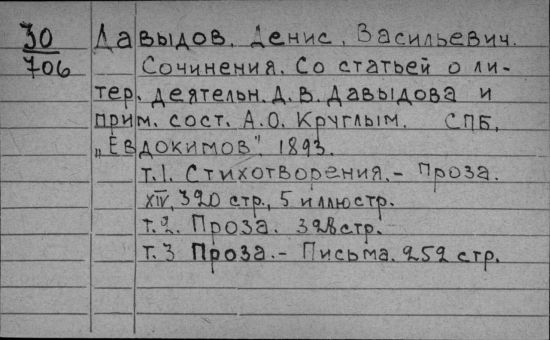 30 Давыдов, Денис, Васильевич.
706 Сочинения. Со статьей о ли-
тер. деятельн. Д. В. Давыдова и
прим. сост. А.О. Круглым. СПБ,
„Евдокимов", 1893.
т.1. Стихотворения.- Проза.
XIV, 320 стр., 5 иллюстр.
т.2. Проза. 328 стр.
т.3 Проза.- Письма. 252 стр.